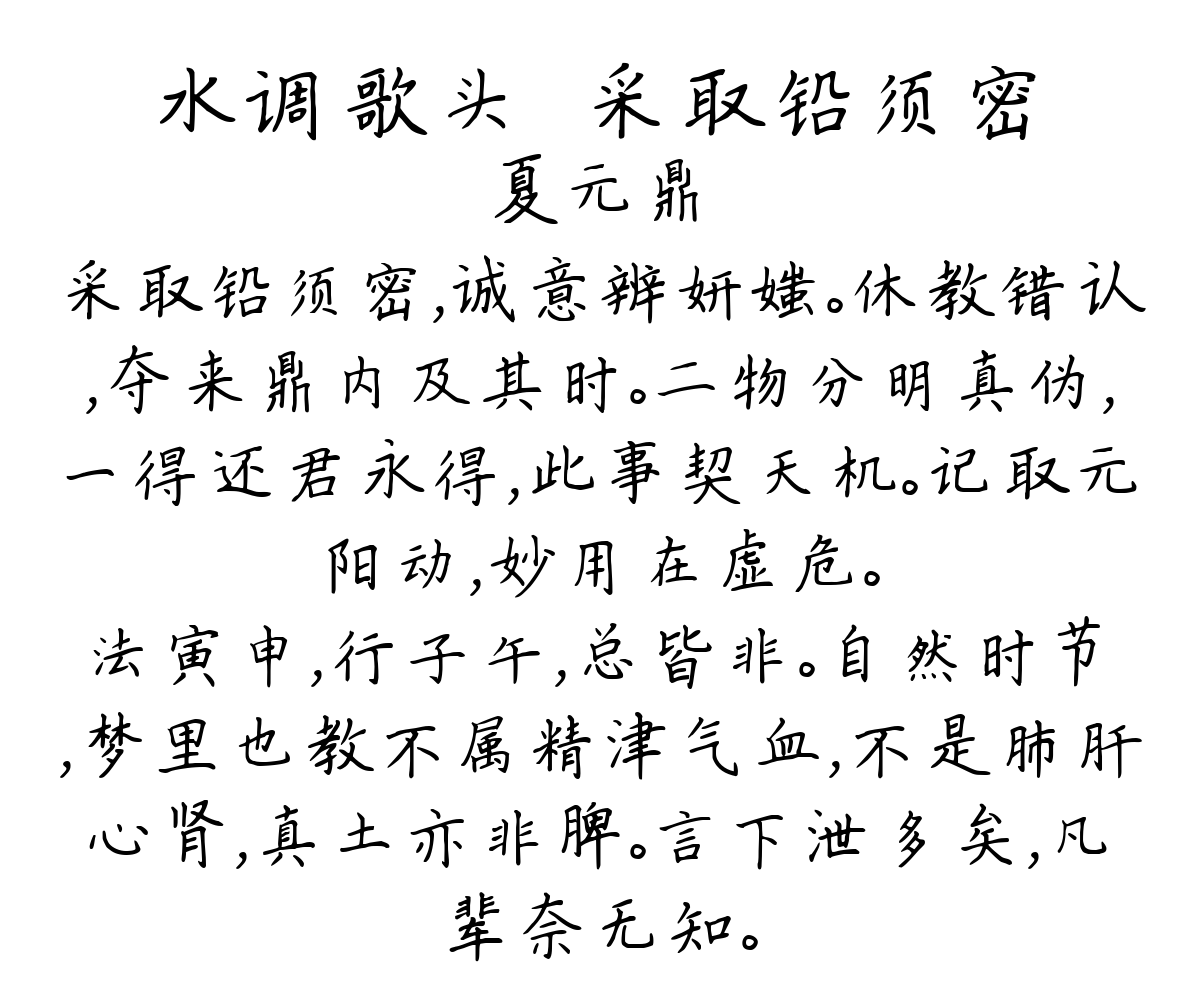 水调歌头 采取铅须密
夏元鼎
采取铅须密,诚意辨妍媸。休教错认
,夺来鼎内及其时。二物分明真伪,
一得还君永得,此事契天机。记取元
阳动,妙用在虚危。
法寅申,行子午,总皆非。自然时节
,梦里也教不属精津气血,不是肺肝
心肾,真土亦非脾。言下泄多矣,凡
辈奈无知。